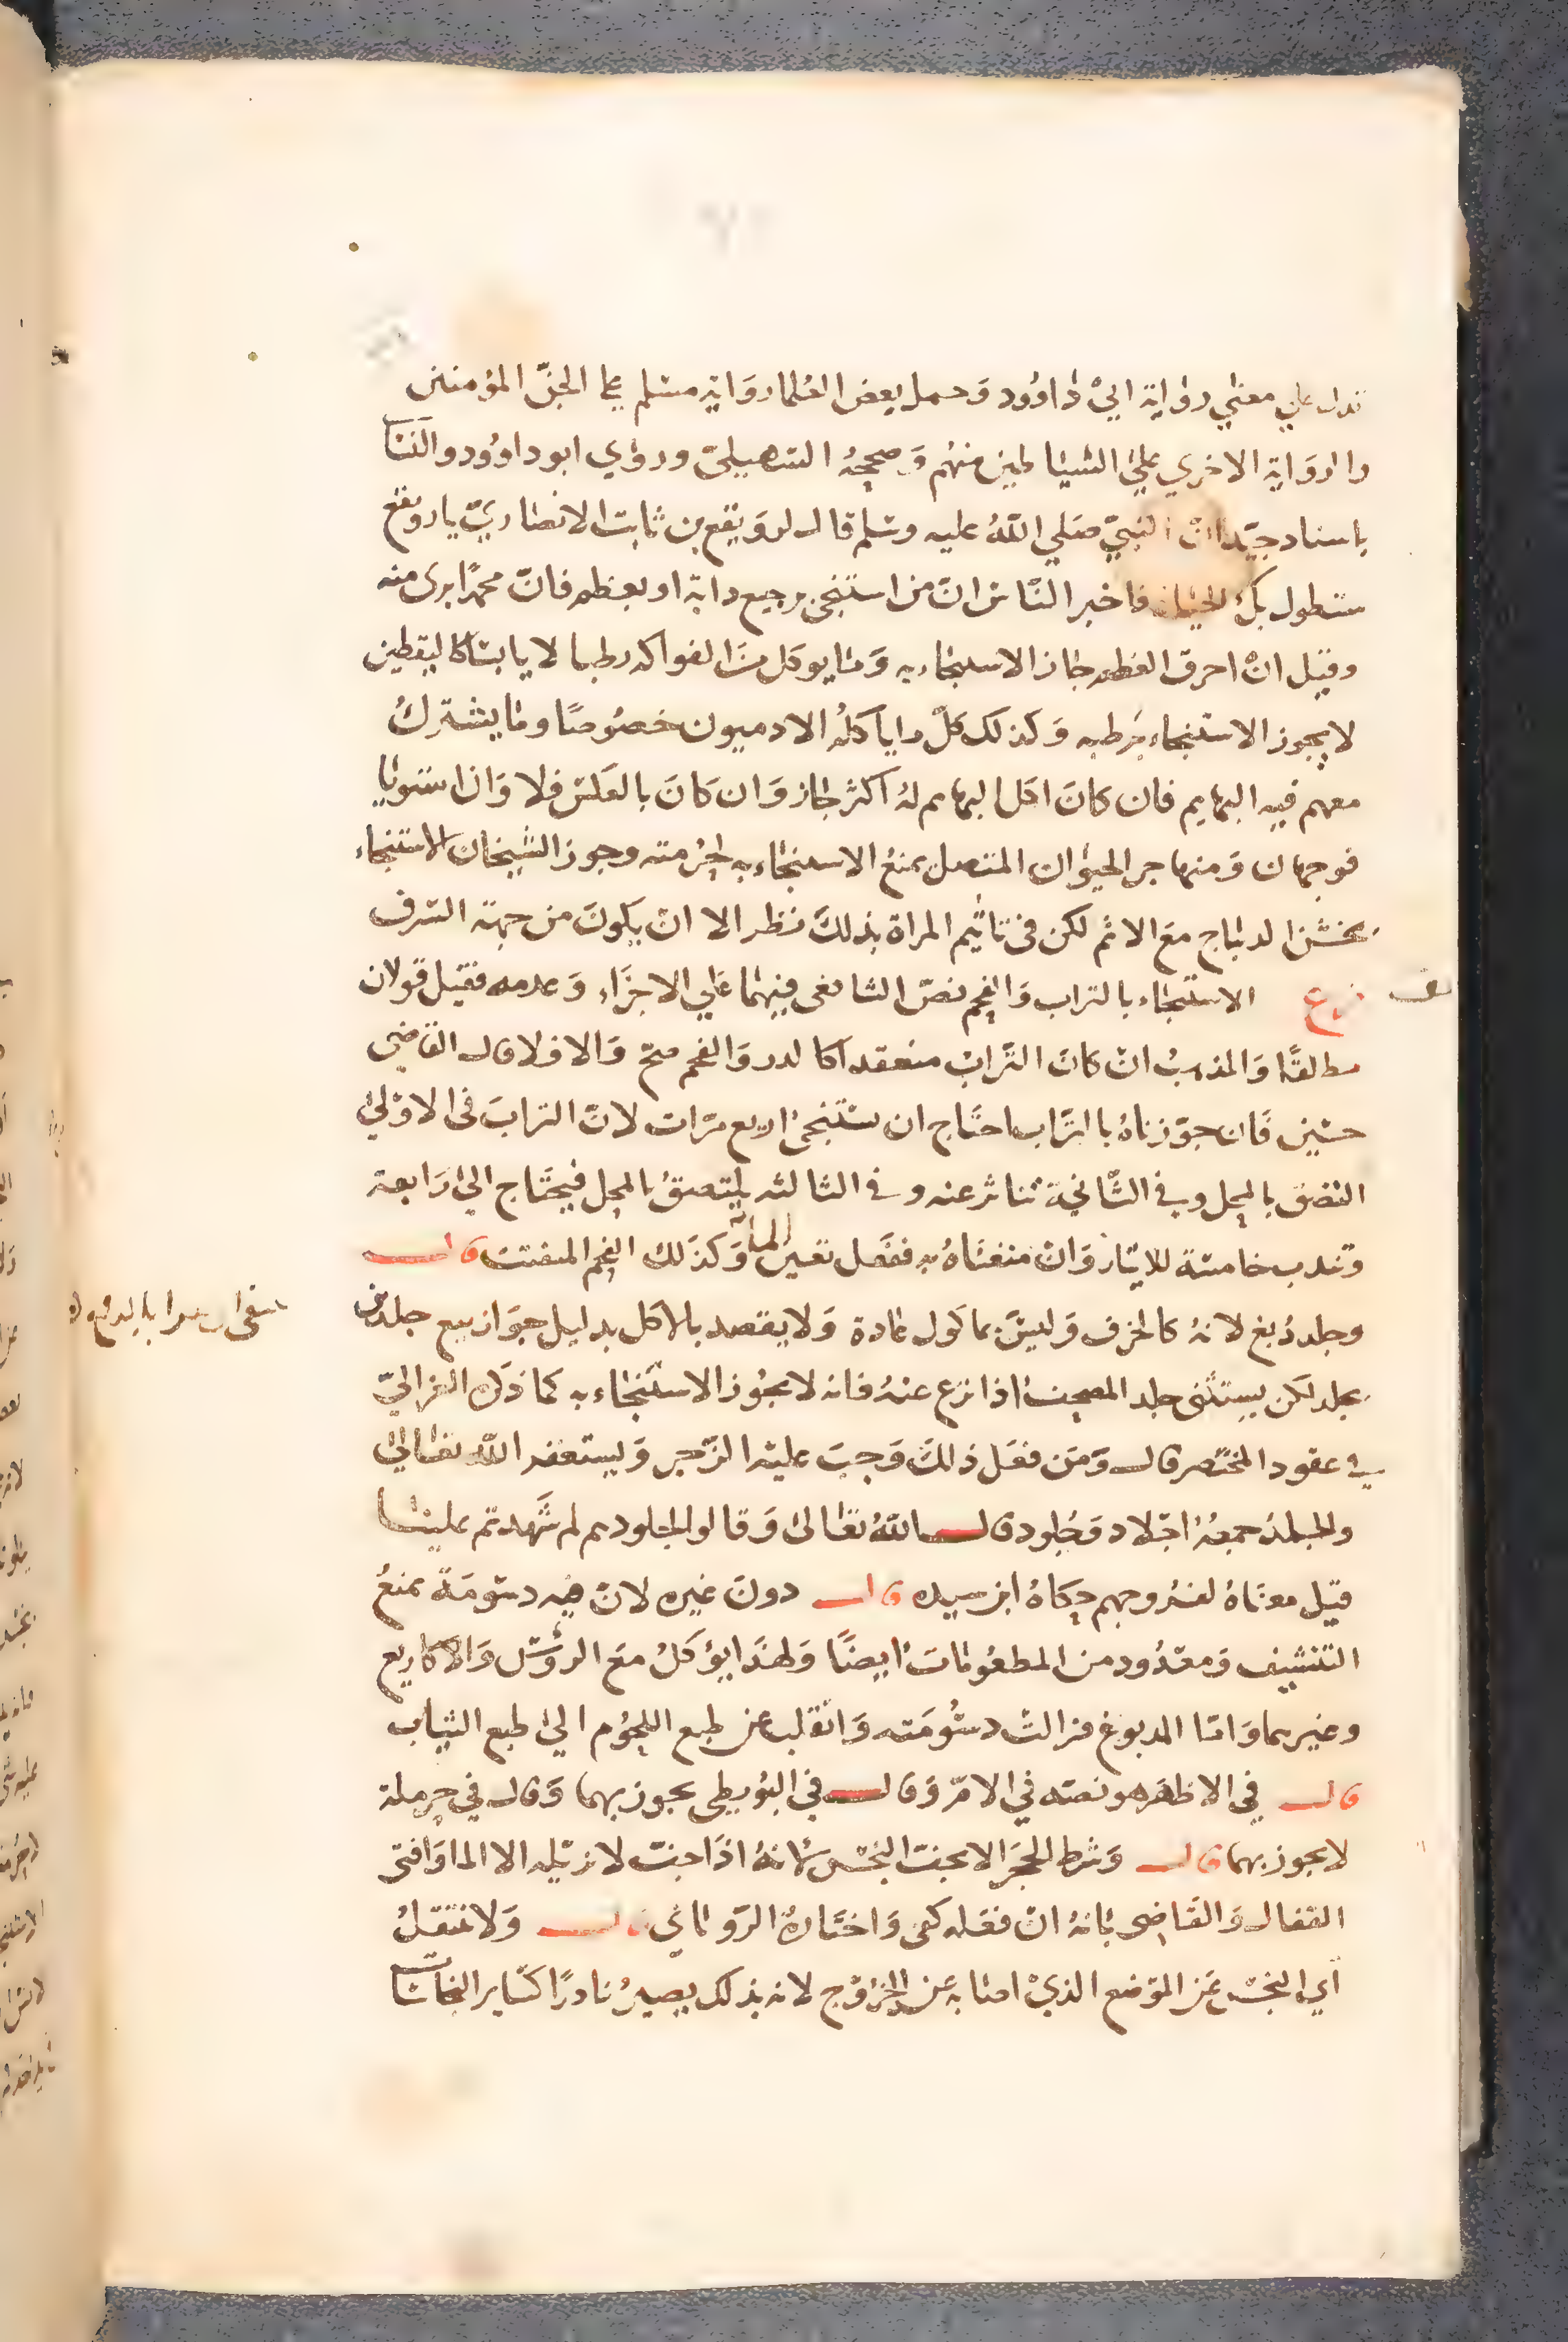 تدل علي معني رواية ابي داوود وحمل بعض العلما رواية مسلم علي الجن المؤمنين
والرواية الاخري علي الشياطين منهم وصححه السهيلي وروي ابو داوود والنسا
باسناد جيد ان النبي صلي الله عليه وسلم قال لرويقع بن ثابت الانصاري يا رويقع
ستطول بك الحياة فاخبر الناس ان من استنجى برجيع دابة او بعظم فان محمدا برى منه
وقيل ان احرق العظم جاز الاستنجاء به وما يوكل من الفواكه رطبا لا يابسا كاليقطين
لا يجوز الاستنجاء برطبه وكذلك كل ما ياكله الادميون خصوصا وما يشترك
معهم فيه البهايم فان كان اكل البهايم له اكثر جاز وان كان بالعكس فلا وان استويا
فوجهان ومنها جز الحيوان المتصل يمنع الاستنجاء به لحرمته وجوز الشيخان الاستنجاء
بخشن الديباج مع الاثم لكن في تاثيم المراة بذلك نظر الا ان يكون من جهة السرف
فرع الاستنجاء بالتراب والفحم نص الشافعي فيهما علي الاجزاء وعدمه فقيل قولان
مطلقا والمذهب ان كان التراب منعقدا كالمدر والفحم صح والا فلا قال القاضي
حسين فان جوزناه بالتراب احتاج ان يستنجي اربع مرات لان التراب في الاولي
التصق بالمحل وفي الثانية تناثر عنه وفي الثالثه يلتصق بالمحل فيحتاج الي رابعة
وتندب خامسة للايتار وان منعناه به ففعل تعين الماء وكذلك الفحم المتفتت قال
وجلد دبغ لانه كالخزف وليس بماكول عادة ولا يقصد بالاكل بدليل جواز بيع جلدين
بجلد لكن يستثنى جلد المصحف اذا نزع عنه فانه لا يجوز الاستنجاء به كما ذكره الغزالي
في عقود المختصر قال ومن فعل ذلك وجب عليه الزجر ويستغفر الله تعالي
والجلد جمعه اجلاد وجلود قال الله تعالى وقالوا لجلودهم لم شهدتم علينا
قيل معناه لفروجهم حكاه ابن سيده قال دون غيره لان فيه دسومة تمنع
التنشيف ومعدود من المطعومات ايضا ولهذا يؤكل مع الرؤس والاكاريع
وغيرهما واما المدبوغ فزالت دسومته وانقلب عن طبع اللحوم الي طبع الثياب
قال في الاظهر هو نصه في الام وقال في البويطي يجوز بهما وقال في حرملة
لا يجوز بهما قال وشرط الحجر الا يجف النجس لانه اذا جف لا يزيله الا الما وافتى
القفال والقاضي بانه ان فعله كفى واختاره الروياني قال ولا ينتقل
اي النجس عن الموضع الذي اصابه عن الخروج لانه بذلك يصير نادرا كساير النجاسات